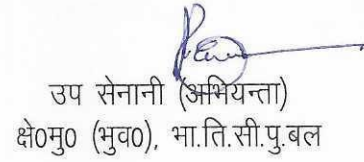 उप सेनानी (अभियन्ता)
क्षे0मु0 (भुव0), भा.ति.सी.पु.बल